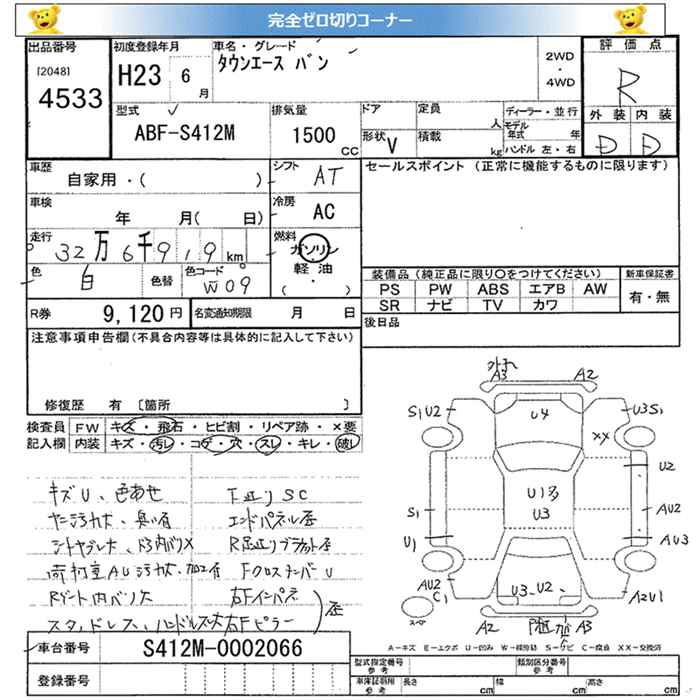 完全ゼロ切りコーナー
出品番号 初度登録年月 車名・グレード 評価点
[2048] 4533 H23 6月 タウンエース バン 2WD・4WD R
型式 排気量 ドア 定員 人 ディーラー・並行 外装 内装
ABF-S412M 1500 CC 形状 V 積載 kg モデル年式 年 ハンドル 左・右 D D
車歴 自家用・( ) シフト AT セールスポイント (正常に機能するものに限ります)
車検 年 月( 日) 冷房 AC
走行 32万6千919km 燃料 ガソリン
色 白 色替 色コード W09 軽油 ( ・ )
装備品 (純正品に限り○をつけてください) 新車保証書
PS PW ABS エアB AW 有・無
SR ナビ TV カワ
R券 9,120円 名変通知期限 月 日 後日品
注意事項申告欄(不具合内容等は具体的に記入して下さい)
修復歴 有 [箇所 ]
検査員 FW キズ・飛石・ヒビ割・リペア跡・×要
記入欄 内装 キズ・汚れ・コゲ・穴・スレ・キレ・破レ
キズU、色あせ 下廻りSC
ヤニ汚れ大、臭い有 エンドパネル歪
荷村室AU汚れ大、加工有 FクロスメンバーU
Rゲート内バリ大 右Fインパネ
スタッドレス、ハンドルスレ大 右Fピラー 歪
A3 A2
S1U2 U4 U3S1
XX
U2
S1 U1多 U3 AU2
U1 AU3
AU2 C1 U3 U2 A2U1
スペア
A2 A3
A-キズ E-エクボ U-凹み W-補修跡 S-サビ C-腐食 XX-交換済
車台番号 S412M-0002066
型式指定番号 参考 類別区分番号 参考
登録番号 車庫証明用 参考 長さ cm 幅 cm 高さ cm